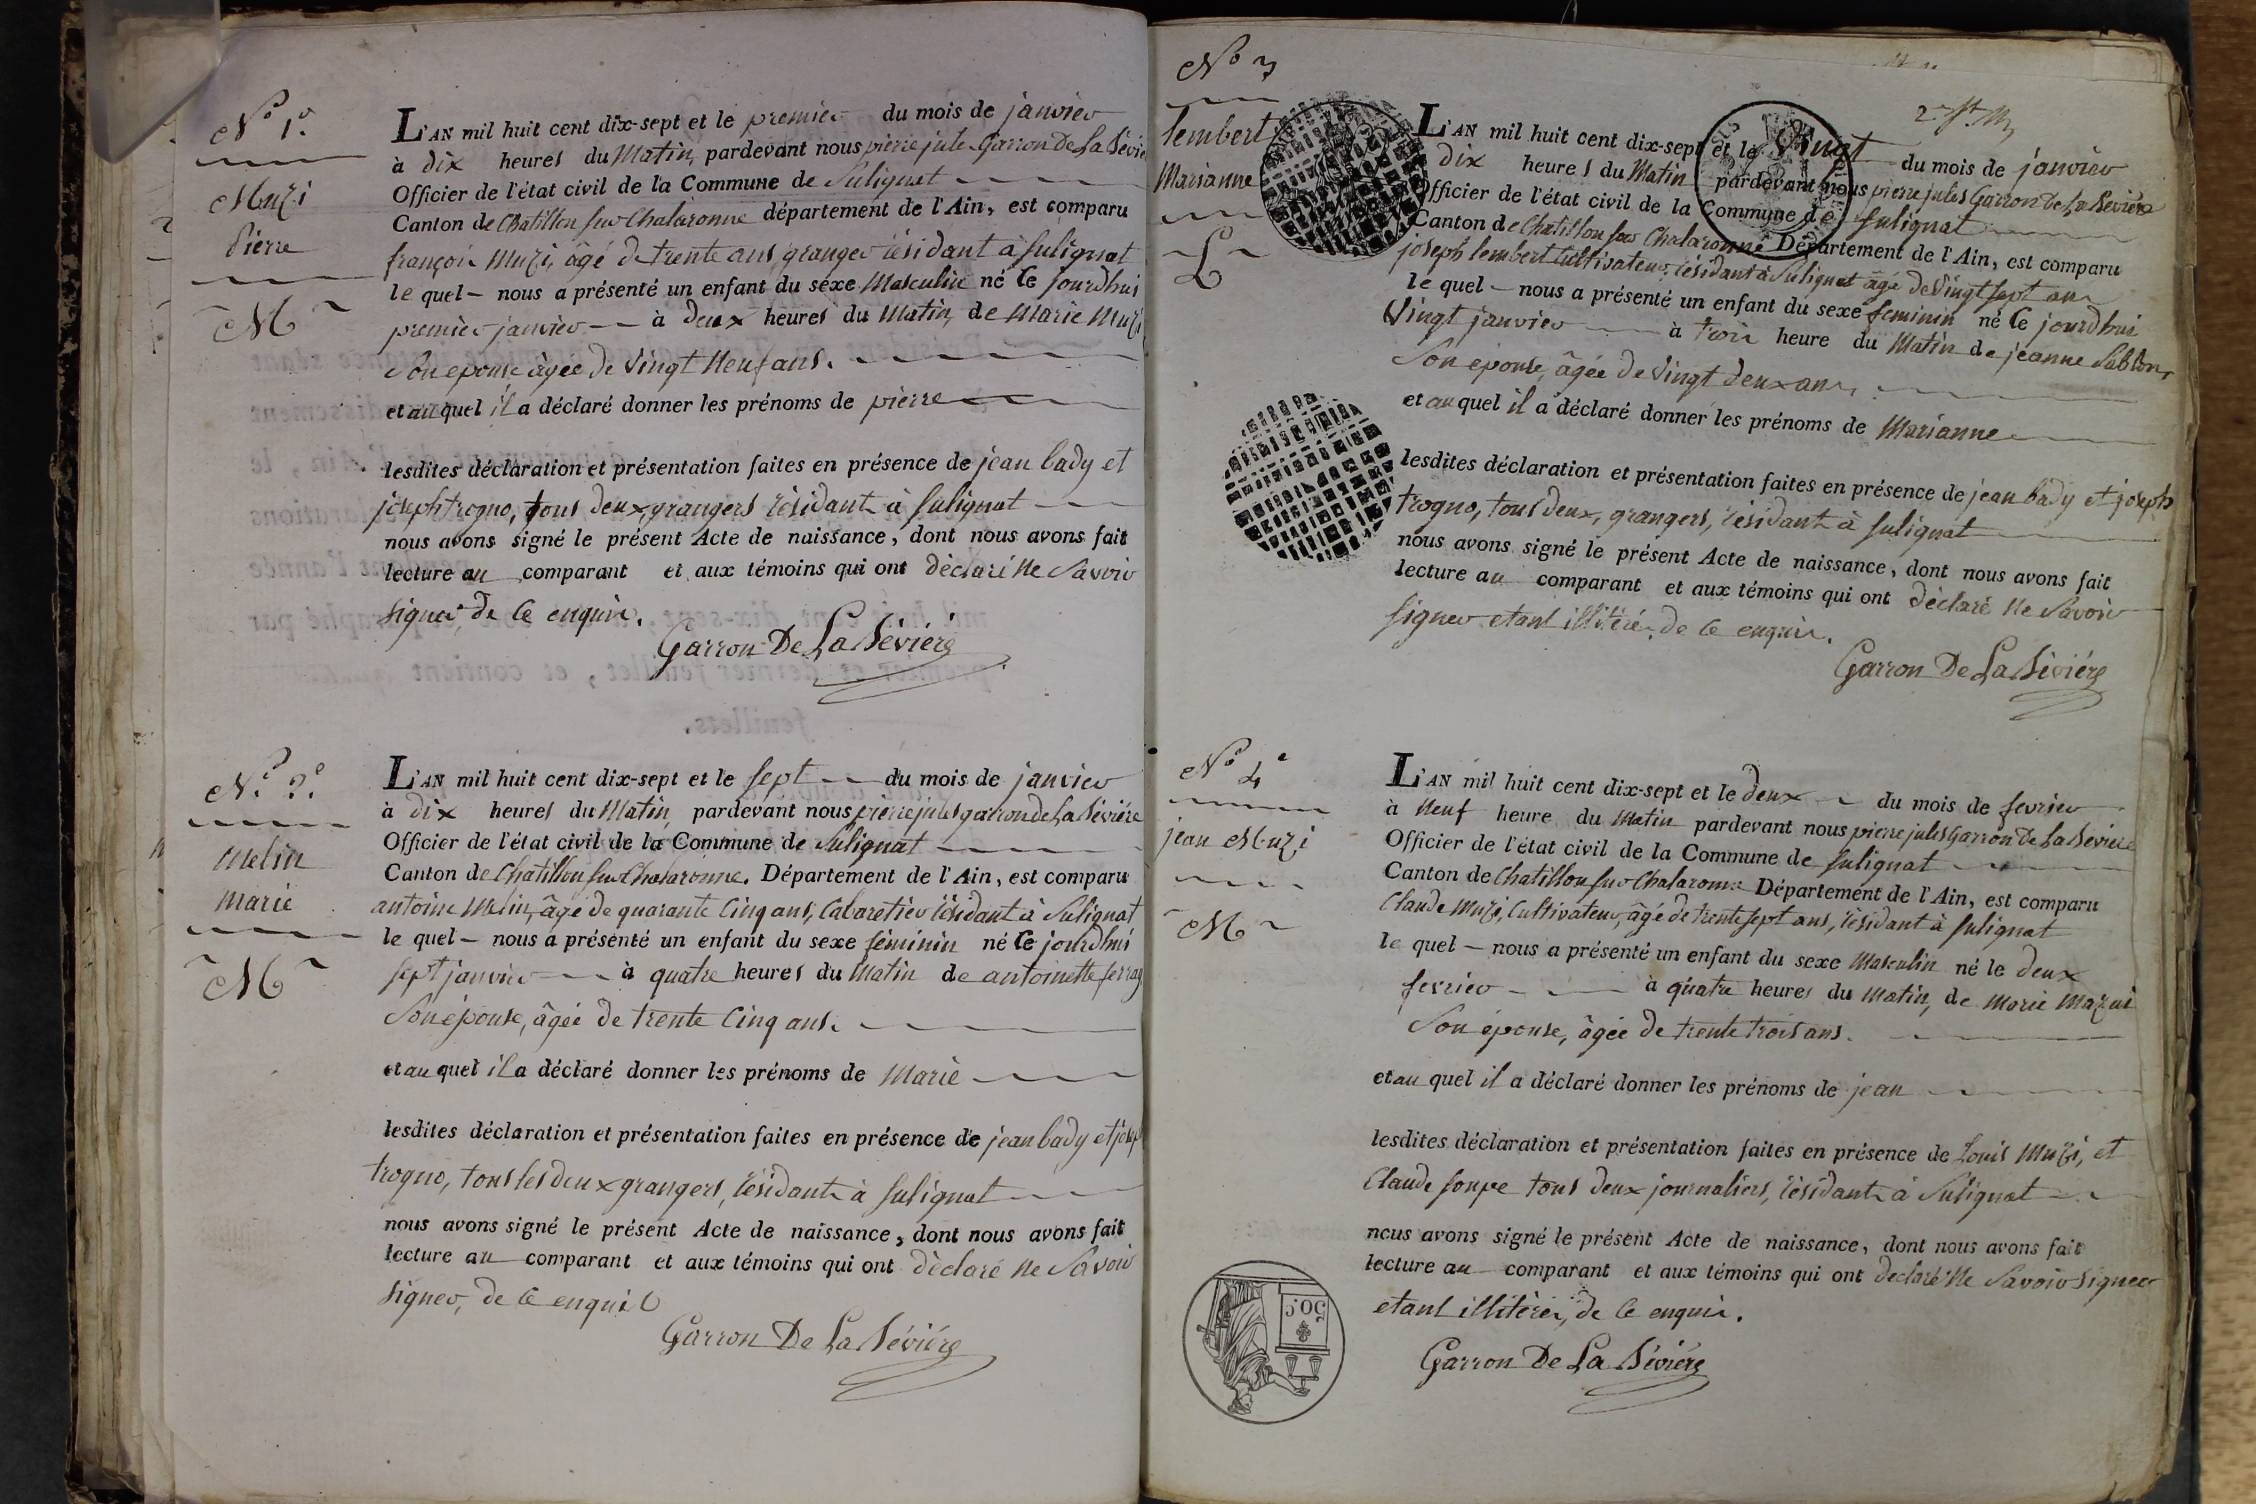 N° 1.°
Muzi
Pierre
M
L'AN mil huit cent dix-sept et le premier du mois de janvier
à dix heures du Matin, pardevant nous pierre jules Garron De La Sévière
Officier de l'état civil de la Commune de Sulignat
Canton de Chatillon sur Chalaronne département de l'Ain, est comparu
françois Muzi, âgé de trente ans, granger résidant à Sulignat
le quel nous a présenté un enfant du sexe Masculin né le jourdhui
premier janvier à deux heures du Matin, de Marie Muzi
Son épouse âgée de vingt neuf ans.
et au quel il a déclaré donner les prénoms de pierre
lesdites déclaration et présentation faites en présence de jean bady et
joseph trogno, tous deux, grangers résidant à Sulignat
nous avons signé le présent Acte de naissance, dont nous avons fait
lecture au comparant et aux témoins qui ont déclaré ne Savoir
signer de ce enquis.
Garron De La Séviére
N.° 2.°
Melin
Marie
M
L'AN mil huit cent dix-sept et le sept du mois de janvier
à dix heures du Matin, pardevant nous pierre jules garron de La Séviére
Officier de l'état civil de la Commune de Sulignat
Canton de Chatillon sur Chalaronne. Département de l'Ain, est comparu
antoine Melin, âgé de quarante Cinq ans, Cabaretier résidant à Sulignat
le quel nous a présenté un enfant du sexe féminin né le jourdhui
sept janvier à quatre heures du Matin de antoinette ferray
Son épouse, âgée de trente Cinq ans.
et au quel il a déclaré donner les prénoms de Marie
lesdites déclaration et présentation faites en présence de jean bady et josep
trogno, tous les deux grangers, résidant à Sulignat
nous avons signé le présent Acte de naissance, dont nous avons fait
lecture au comparant et aux témoins qui ont déclaré ne Savoir
signer, de ce enquis
Garron De La Séviére
N° 3
lembert
Marianne
L
L'AN mil huit cent dix-sept et le Vingt du mois de janvier
dix heures du Matin pardevant nous pierre jules Garron De La Sevière
Officier de l'état civil de la Commune de Sulignat
Canton de Chatillon sur Chalaronne Département de l'Ain, est comparu
joseph lembert Cultivateur, résidant à Sulignat âgé de Vingt sept ans
le quel nous a présenté un enfant du sexe feminin né le jourdhui
Vingt janvier à trois heure du Matin de jeanne Sablon,
Son épouse, âgée de Vingt deux ans,
et au quel il a déclaré donner les prénoms de Marianne
lesdites déclaration et présentation faites en présence de jean bady et joseph
trogno, tous deux, grangers, résidant à Sulignat
nous avons signé le présent Acte de naissance, dont nous avons fait
lecture au comparant et aux témoins qui ont déclaré ne Savoir
signer etant illitéré, de ce enquis.
Garron De La Séviére
N° 4e
jean Muzi
M
L'AN mil huit cent dix-sept et le deux du mois de fevrier
à Neuf heure du Matin pardevant nous pierre jules Garron De La Seviere
Officier de l'état civil de la Commune de Sulignat
Canton de Chatillon sur Chalaronne Département de l'Ain, est comparu
Claude Muzi, Cultivateur, âgé de trente sept ans, résidant à Sulignat
le quel nous a présenté un enfant du sexe Masculin né le deux
fevrier à quatre heures du Matin, de Marie Mazui
Son épouse, âgée de trente trois ans.
et au quel il a déclaré donner les prénoms de jean
lesdites déclaration et présentation faites en présence de Louis Muzi, et
Claude soupe tous deux journaliers, résidant à Sulignat
nous avons signé le présent Acte de naissance, dont nous avons fait
lecture au comparant et aux témoins qui ont declaré Ne Savoir Signer
etant illitérés, de ce enquis.
50.C
Garron De La Séviére